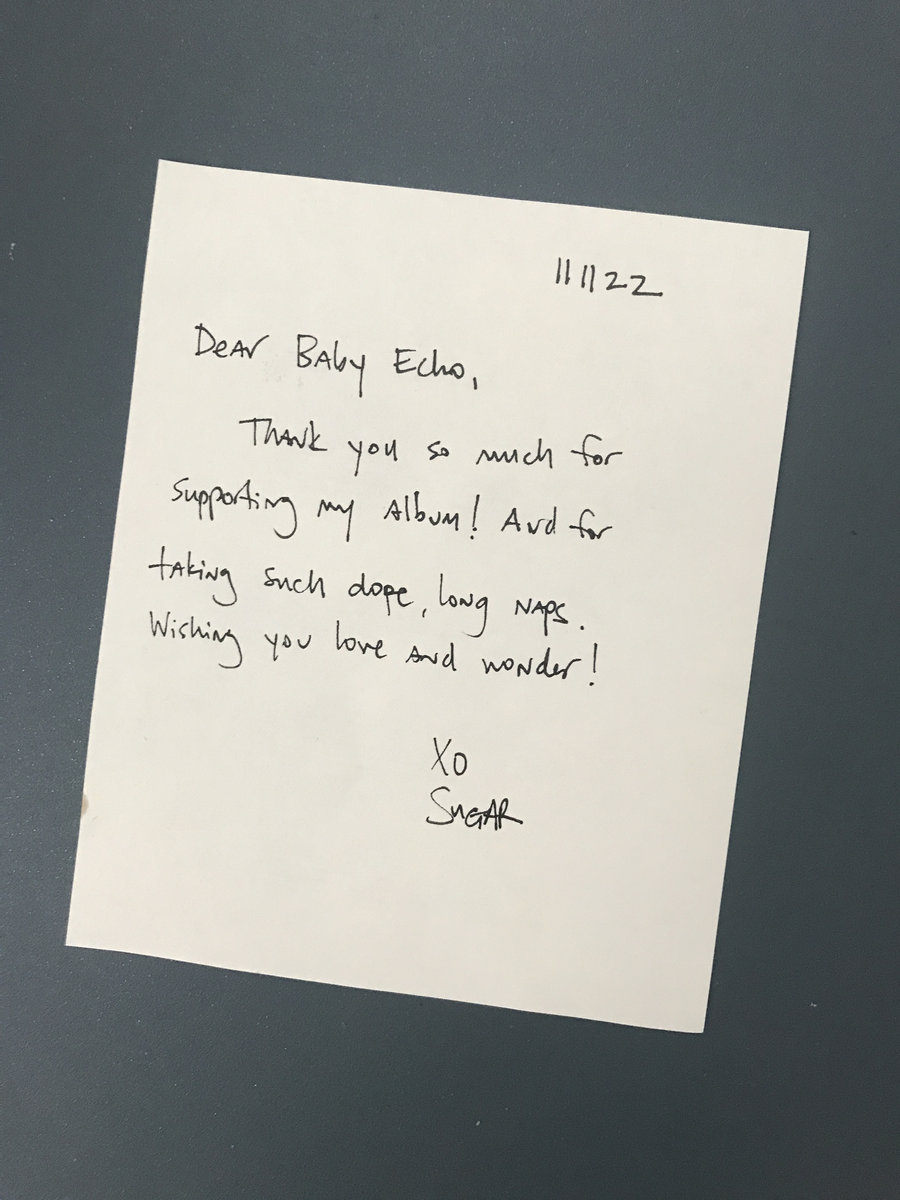 11 11 22
Dear Baby Echo,
Thank you so much for
supporting my album! And for
taking such dope, long naps.
Wishing you love and wonder!
XO
SUGAR